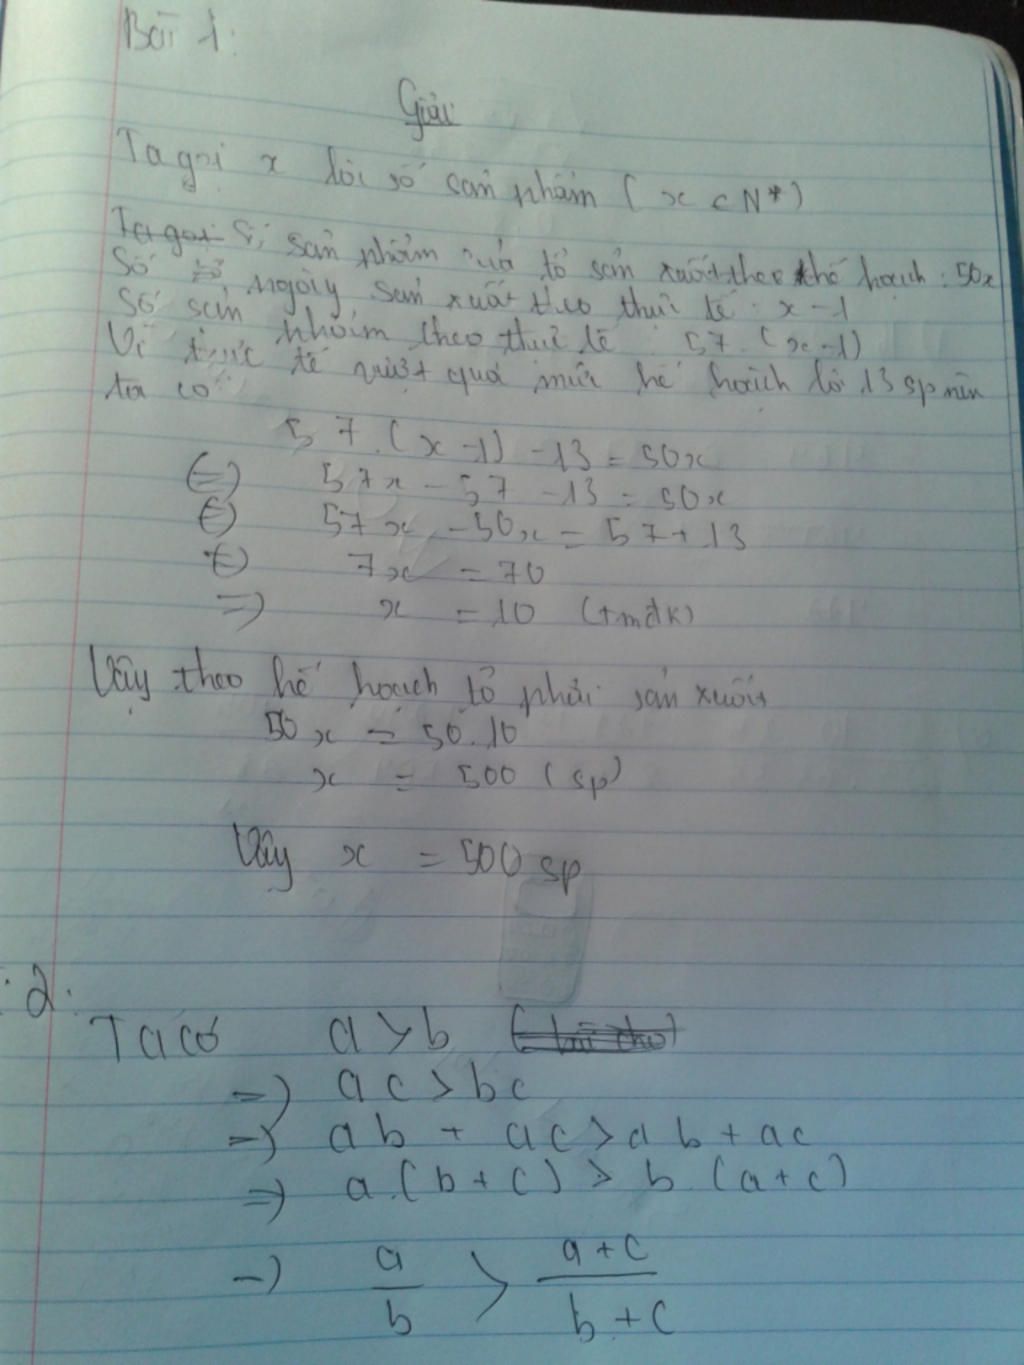 Bài 1:
Giải
Ta gọi x là số sản phẩm ( x ∈ N*)
Ta gọi Số sản phẩm của tổ sản xuất theo kế hoạch : 50x
Số ngày sản xuất theo thực tế : x - 1
Số sản phẩm theo thực tế : 57.(x-1)
Vì thực tế vượt quá mức kế hoạch là 13 sp nên
ta có
57.(x-1) - 13 = 50x
(=) 57x - 57 - 13 = 50x
(=) 57x - 50x = 57 + 13
(=) 7x = 70
=) x = 10 (tmđk)
Vậy theo kế hoạch tổ phải sản xuất
50x = 50.10
x = 500 (sp)
Vậy x = 500 sp
: 2.
Ta có a > b
=) ac > bc
=) ab + ac > ab + ac
=) a.(b+c) > b.(a+c)
=) a/b > a+c/b+c